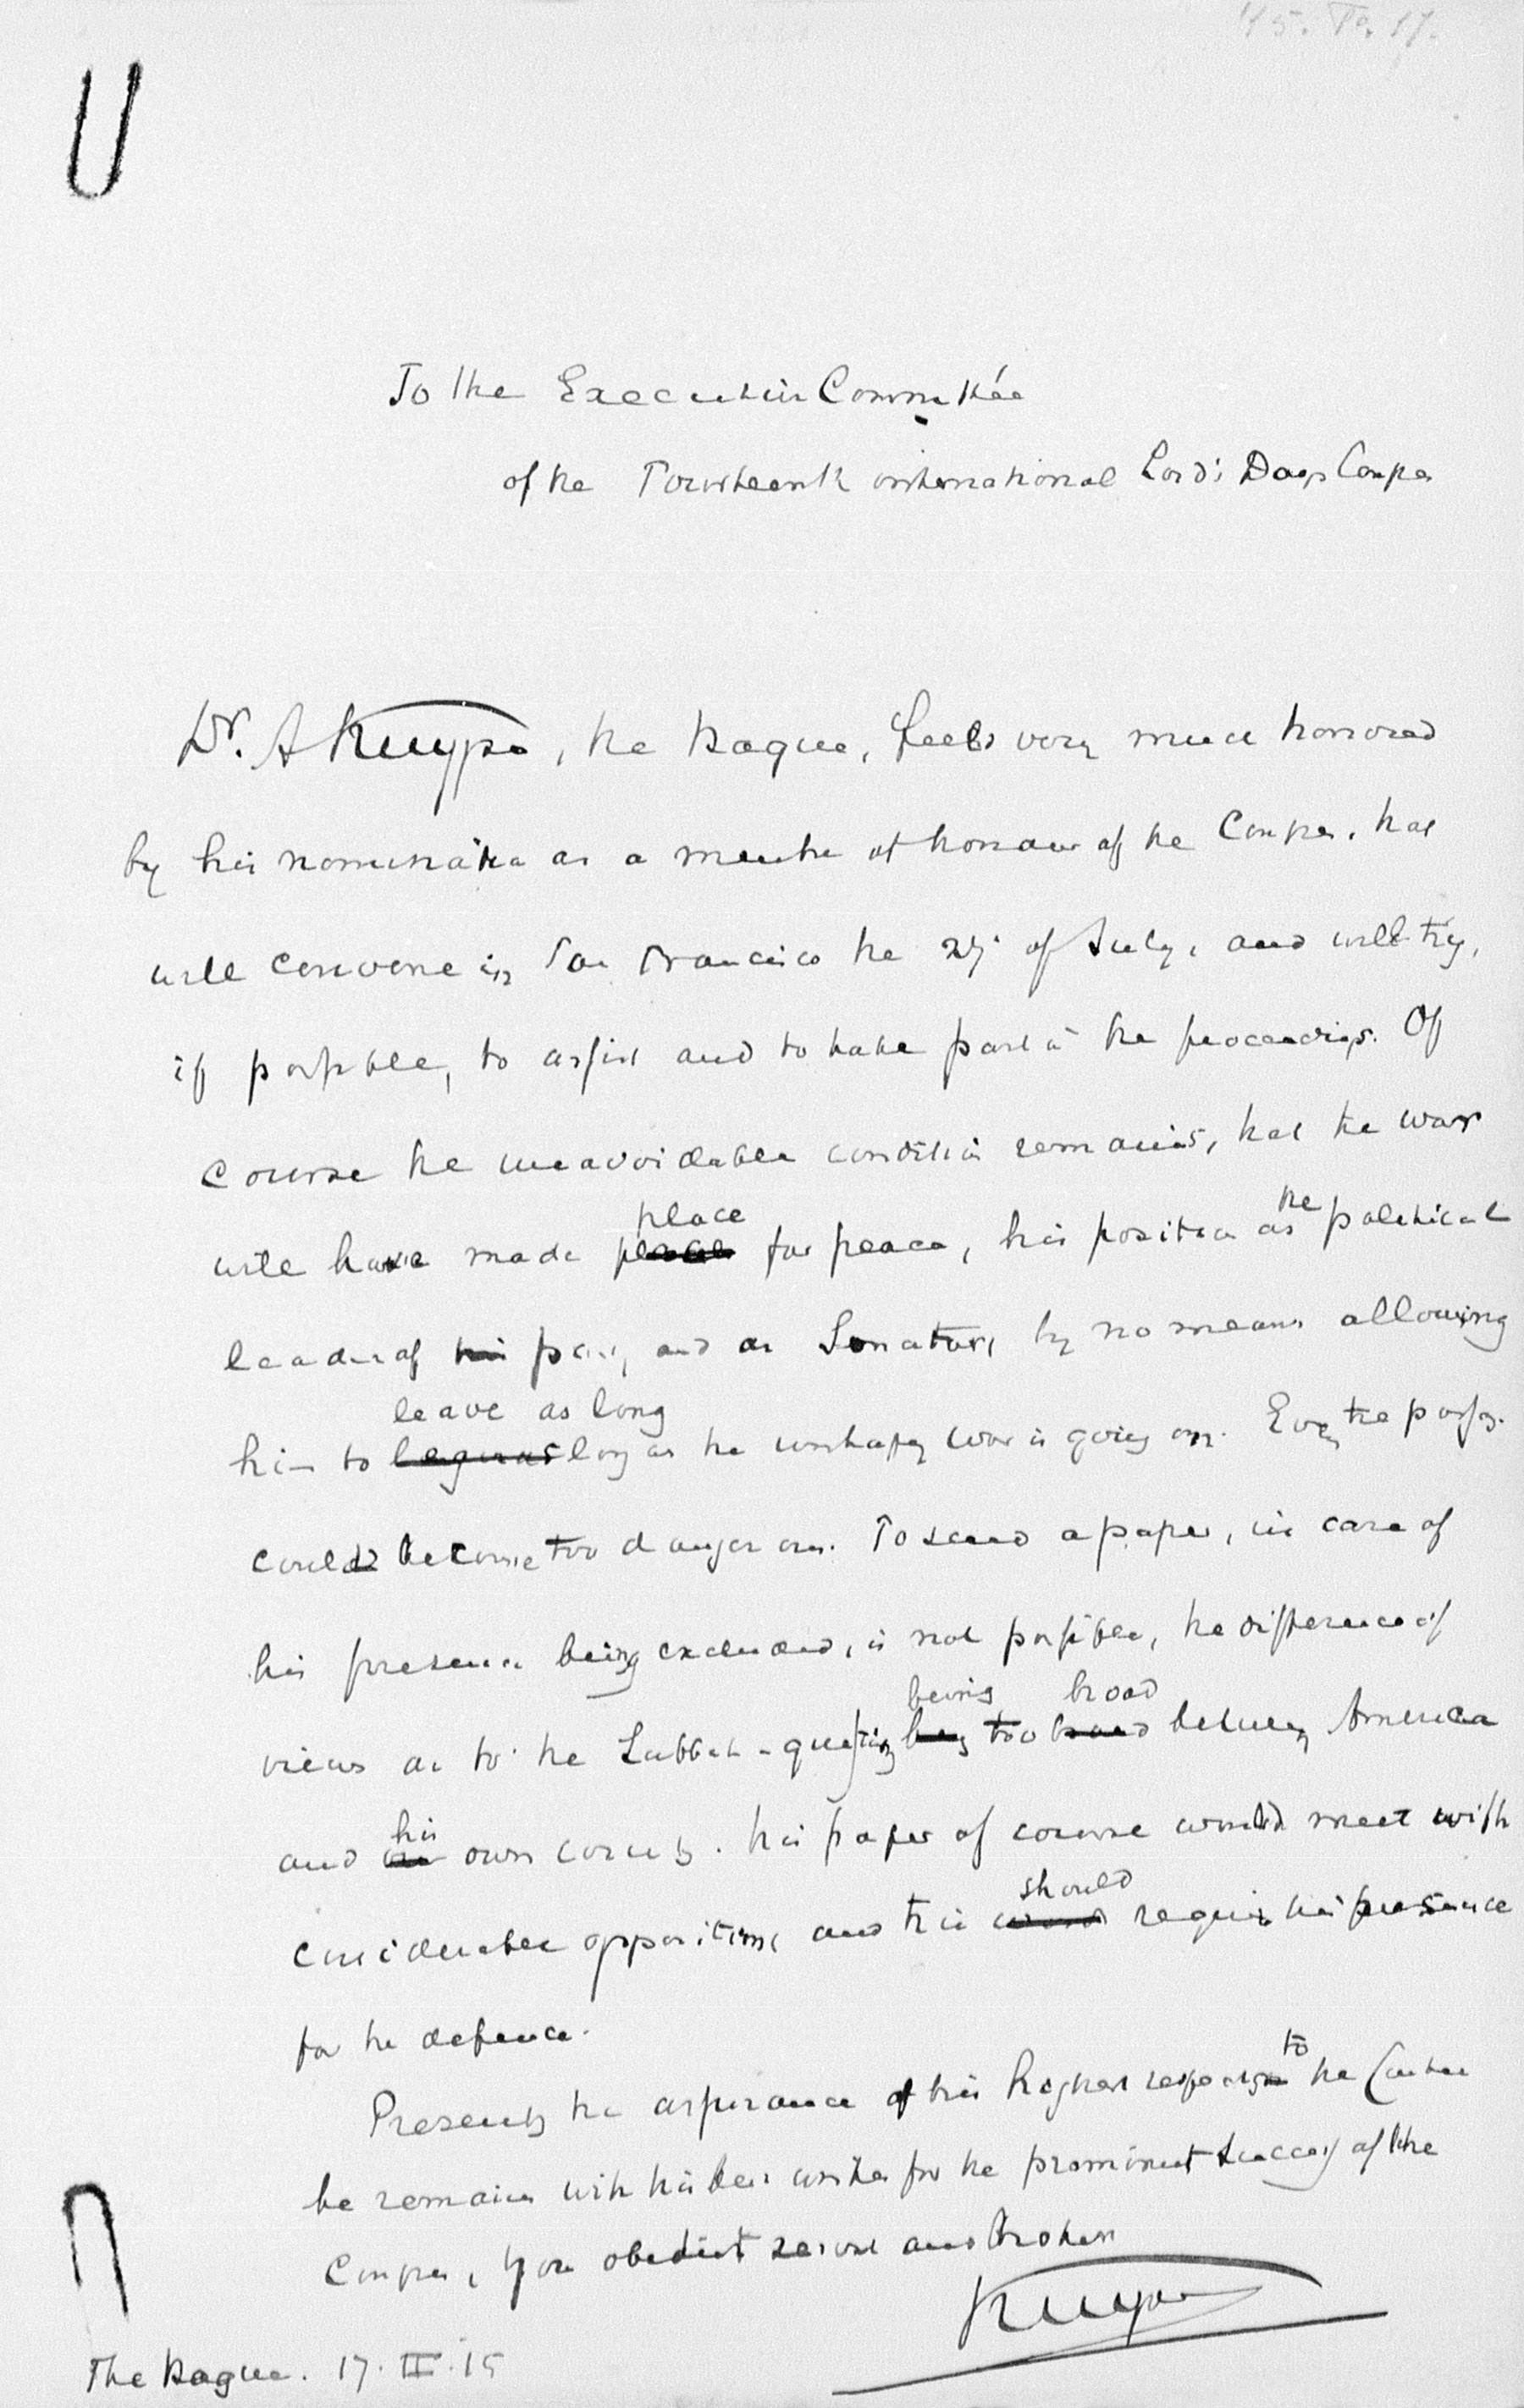 To the Executive Committée
of the Fourteenth international Lord's Days Congres
Dr. A Kuyper, the Hague, feels very much honored
by his nomination as a member of honour of the Congres, that
will convene in San Francisco the 27 of July, and will try,
if possible, to assist and to take part in the proceedings. Of
course the unavoidable condition remains, that the war
will have made place for peace, his position as the political
leader of party and as Senator, by no means allowing
him to leave as long as the unhappy war is going on. Even the passage
could become too dangerous. To send a paper, in case of
his presence being excluded, is not possible, the difference of
views as to the Sabbath-question being too broad between America
and his own country. His paper of course would meet with
considerable opposition, and this should require his presence
for the defence.
Presenting the assurance of his highest respect to the Comitee
he remains with his best wishes for the prominent success of the
Congres, your obedient servant and brother
Kuyper
The Hague. 17.III.15